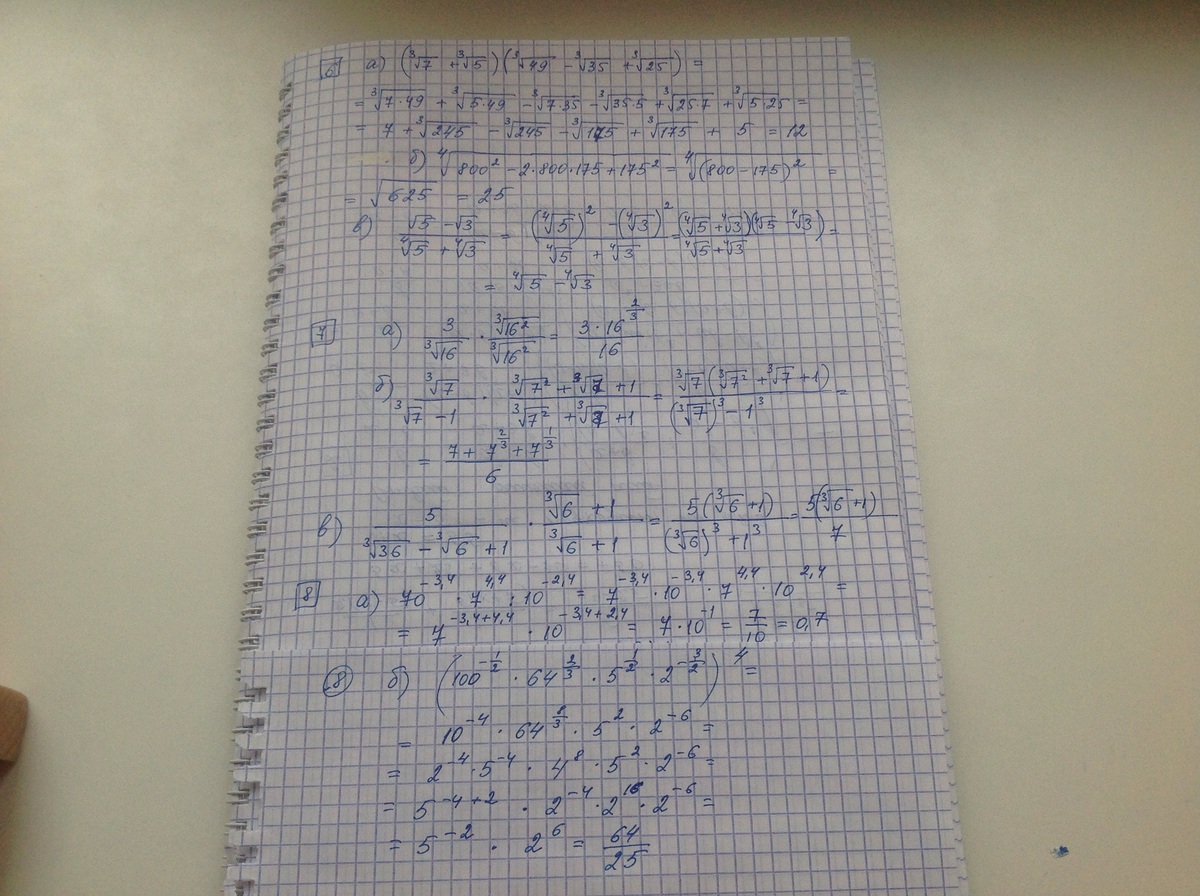 6 а) (∛7 + ∛5)(∛49 − ∛35 + ∛25) =
= ∛(7·49) + ∛(5·49) − ∛(7·35) − ∛(35·5) + ∛(25·7) + ∛(5·25) =
= 7 + ∛245 − ∛245 − ∛175 + ∛175 + 5 = 12
б) ∜(800² − 2·800·175 + 175²) = ∜((800 − 175)²) =
= √625 = 25
в) (√5 − √3)/(∜5 + ∜3) = ((∜5)² − (∜3)²)/(∜5 + ∜3) = (∜5 + ∜3)(∜5 − ∜3)/(∜5 + ∜3) =
= ∜5 − ∜3
7 а) 3/∛16 · ∛16²/∛16² = (3·16^(2/3))/16
б) ∛7/(∛7 − 1) · (∛7² + ∛7 + 1)/(∛7² + ∛7 + 1) = ∛7(∛7² + ∛7 + 1)/((∛7)³ − 1³) =
= (7 + 7^(2/3) + 7^(1/3))/6
в) 5/(∛36 − ∛6 + 1) · (∛6 + 1)/(∛6 + 1) = 5(∛6 + 1)/((∛6)³ + 1³) = 5(∛6 + 1)/7
8 а) 70^(−3,4) · 7^(4,4) : 10^(−2,4) = 7^(−3,4) · 10^(−3,4) · 7^(4,4) · 10^(2,4) =
= 7^(−3,4+4,4) · 10^(−3,4+2,4) = 7·10^(−1) = 7/10 = 0,7
8 б) (100^(−1/2) · 64^(2/3) · 5^(1/2) · 2^(−3/2))^4 =
= 10^(−4) · 64^(8/3) · 5² · 2^(−6) =
= 2^(−4) · 5^(−4) · 4^8 · 5² · 2^(−6) =
= 5^(−4+2) · 2^(−4) · 2^(16) · 2^(−6) =
= 5^(−2) · 2^6 = 64/25